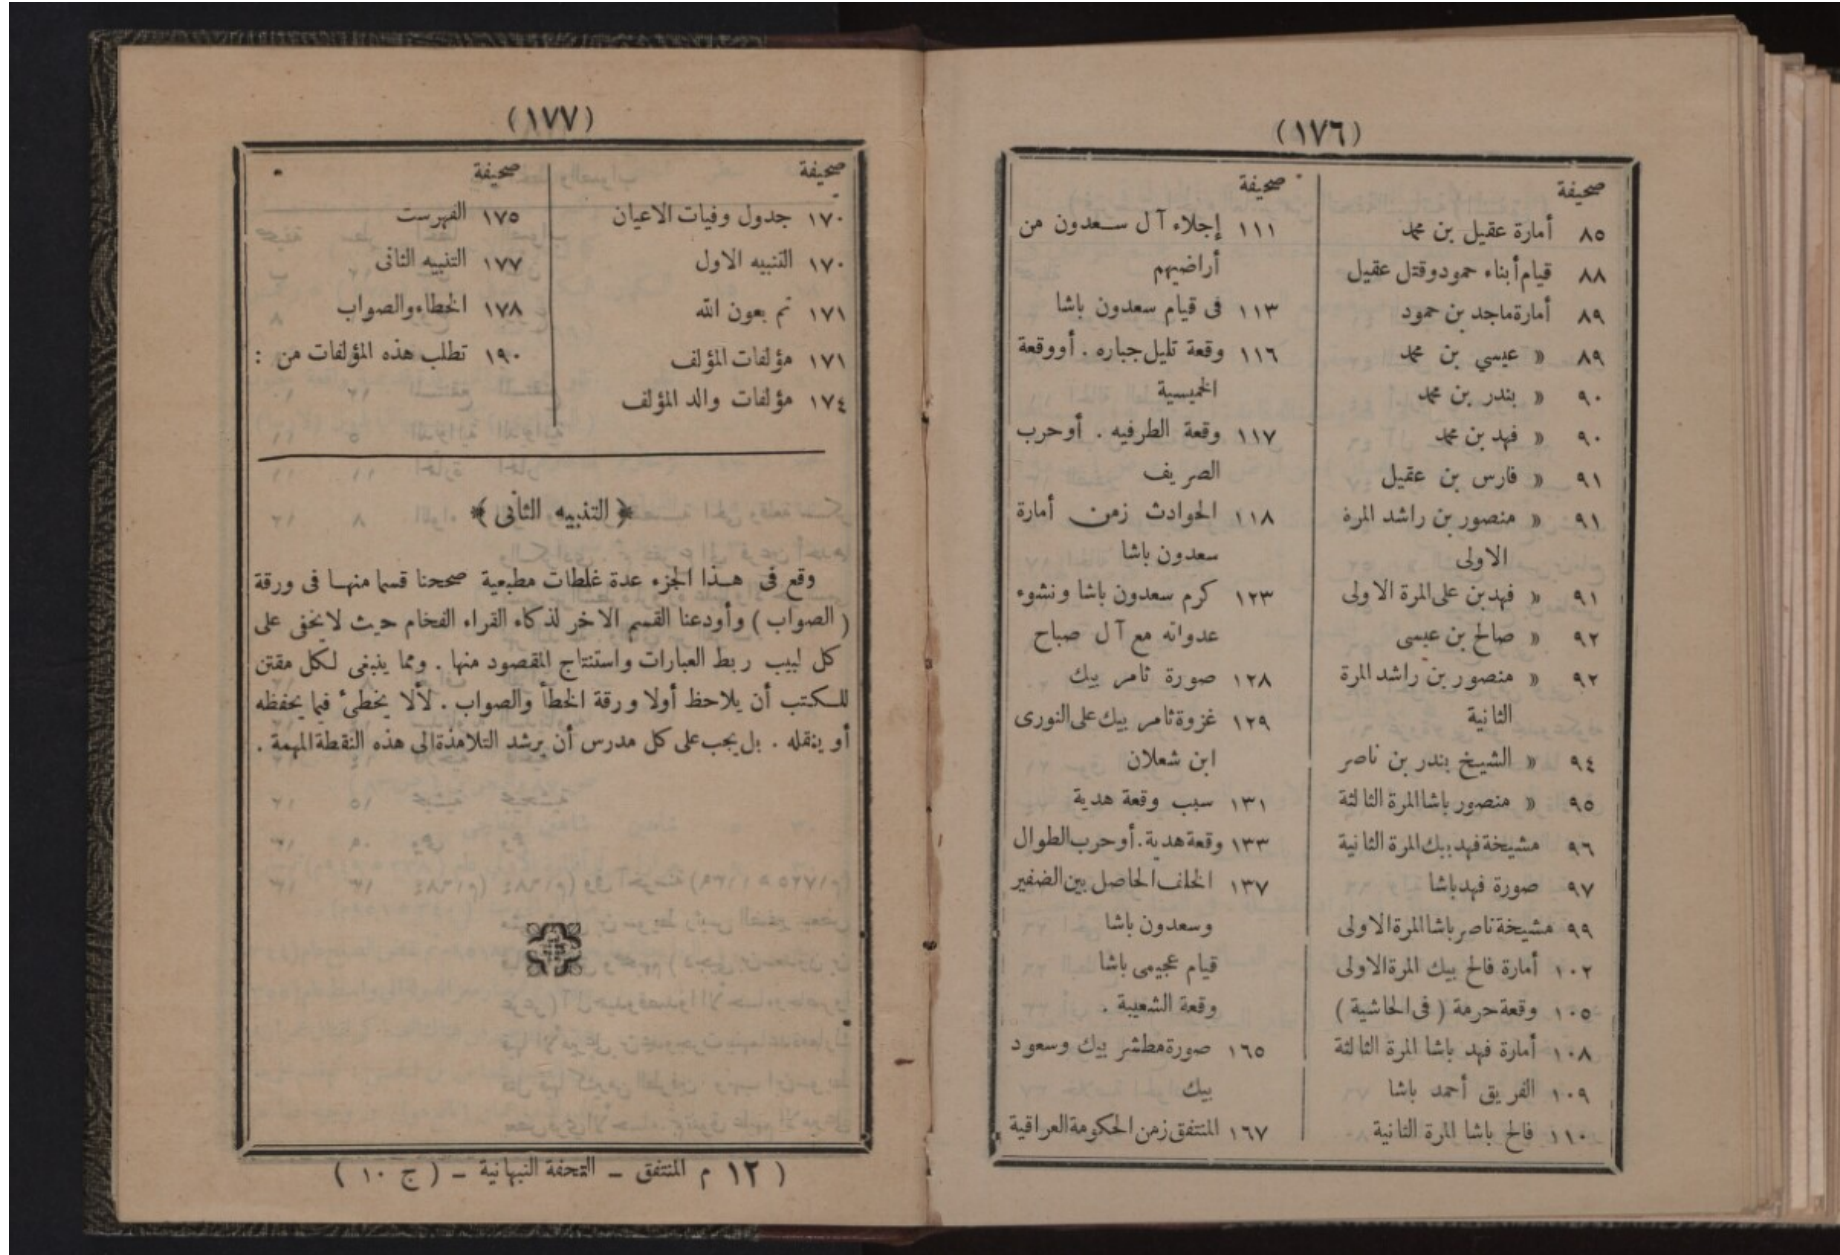 (١٧٦)
صحيفة
٨٥ أمارة عقيل بن محمد
٨٨ قيام أبناء حمود وقتل عقيل
٨٩ أمارة ماجد بن حمود
٨٩ « عيسي بن محمد
٩٠ « بندر بن محمد
٩٠ « فهد بن محمد
٩١ « فارس بن عقيل
٩١ « منصور بن راشد المرة
الاولى
٩١ « فهد بن على المرة الاولى
٩٢ « صالح بن عيسى
٩٢ « منصور بن راشد المرة
الثانية
٩٤ « الشيخ بندر بن ناصر
٩٥ « منصور باشا المرة الثالثة
٩٦ مشيخة فهد بيك المرة الثانية
٩٧ صورة فهد باشا
٩٩ مشيخة ناصر باشا المرة الاولى
١٠٢ أمارة فالح بيك المرة الاولى
١٠٥ وقعة حرمة ( فى الحاشية )
١٠٨ أمارة فهد باشا المرة الثالثة
١٠٩ الفريق أحمد باشا
١١٠ فالح باشا المرة الثانية
صحيفة
١١١ إجلاء آل سعدون من
أراضيهم
١١٣ فى قيام سعدون باشا
١١٦ وقعة تليل جباره . أو وقعة
الخميسية
١١٧ وقعة الطرفيه . أو حرب
الصريف
١١٨ الحوادث زمن أمارة
سعدون باشا
١٢٣ كرم سعدون باشا ونشوء
عدوانه مع آل صباح
١٢٨ صورة ثامر بيك
١٢٩ غزوة ثامر بيك على النورى
ابن شعلان
١٣١ سبب وقعة هدية
١٣٣ وقعة هدية . أو حرب الطوال
١٣٧ الخلف الحاصل بين الضفير
وسعدون باشا
قيام عجيمى باشا
وقعة الشعيبة .
١٦٥ صورة مطشر بيك وسعود
بيك
١٦٧ المنتفق زمن الحكومة العراقية
(١٧٧)
صحيفة
١٧٠ جدول وفيات الاعيان
١٧٠ التنبيه الاول
١٧١ تم بعون الله
١٧١ مؤلفات المؤلف
١٧٤ مؤلفات والد المؤلف
صحيفة
١٧٥ الفهرست
١٧٧ التنبيه الثانى
١٧٨ الخطاء والصواب
١٩٠ تطلب هذه المؤلفات من :
﴿ التنبيه الثانى ﴾
وقع فى هذا الجزء عدة غلطات مطبعية صححنا قسما منها فى ورقة
( الصواب ) وأودعنا القسم الاخر لذكاء القراء الفخام حيث لا يخفى على
كل لبيب ربط العبارات واستنتاج المقصود منها . ومما ينبغى لكل مقتن
للكتب أن يلاحظ أولا ورقة الخطأ والصواب . لألا يخطئ فيما يحفظه
أو ينقله . بل يجب على كل مدرس أن يرشد التلامذة الى هذه النقطة المهمة .
( ١٢ م المنتفق – التحفة النبهانية – ( ج ١٠ )